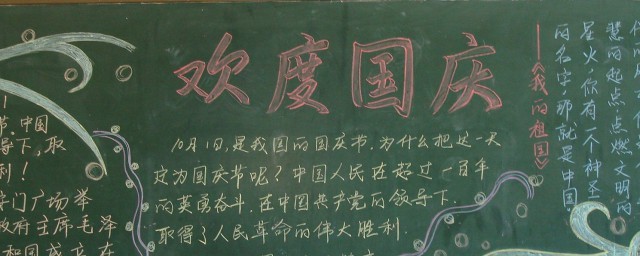 欢度国庆
10月1日,是我国的国庆节.为什么把这一天
定为国庆节呢?中国人民在超过一百年
的英勇奋斗.在中国共产党的领导下.
取得了人民革命的伟大胜利.
!
节.中国
导下,取
利!
门广场举
政府主席毛泽
和国成立.在
——《我的祖国》
慧的起点点燃文明的
星火,你有一个神圣
的名字那就是中国